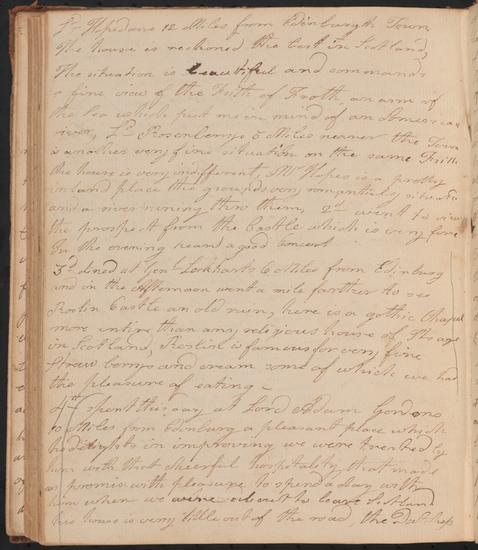 Ld Hopedons 12 Miles from Edinburgh Town
The house is reckoned the best in Scotland,
The situation is beautiful and commands
a fine view of the Frith of Froth, an arm of
the Sea which put me in mind of an American
river, Ld Rosenberrys 5 Miles nearer the Town
is another very fine situation on the same Frith
the house is very indifferent, Mrs Hopes is a pretty
inland place the grounds very romanticly situated
and a river runing thro them, 2d went to view
the prospect from the Castle which is very fine
In the evening heard a good Concert
3d dined at Genl Lockharts 6 Miles from Edinburg
and in the Afternoon went a mile farther to see
Roslin Castle an old ruin, here is a gothic Chapel
more entire than any religious house of Its age
in Scotland, Roslin is famous for very fine
Straw berrys and cream some of which we had
the pleasure of eating –
4th spent this day at Lord Adam Gordons
10 Miles from Edinburg a pleasant place which
he delights in improving we were treated by
him with that cheerful hospitality that made
us promise with pleasure to spend a day with
him when we were about to leave Scotland
his house is very little out of the road, the